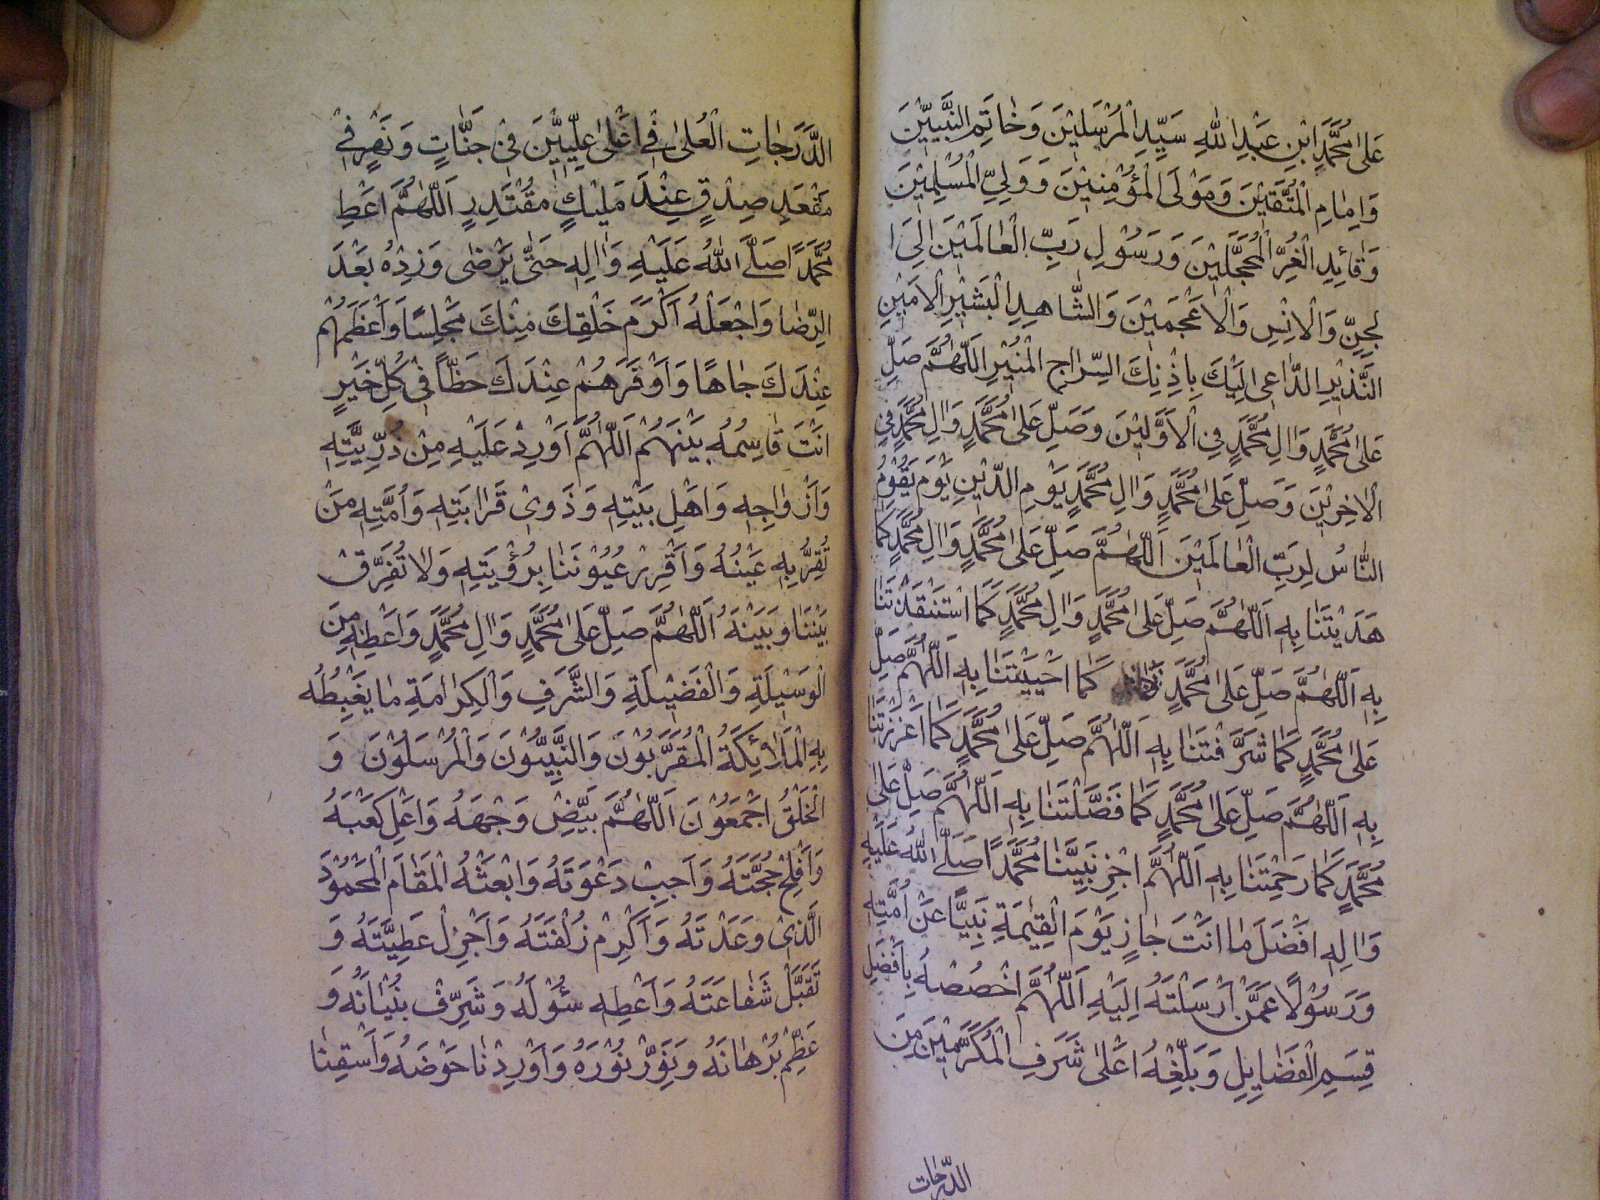 عَلىٰ مُحَمَّدِ ابْنِ عَبْدِ اللهِ سَيِّدِ الْمُرْسَلِيْنَ وَخَاتَمِ النَّبِيِّيْنَ
وَاِمَامِ الْمُتَّقِيْنَ وَمَوْلَى الْمُؤْمِنِيْنَ وَوَلِيِّ الْمُسْلِمِيْنَ
وَقَائِدِ الْغُرِّ الْمُحَجَّلِيْنَ وَرَسُوْلِ رَبِّ الْعَالَمِيْنَ اِلَى ا
لْجِنِّ وَالْاِنْسِ وَالْاَعْجَمِيْنَ وَالشَّاهِدِ الْبَشِيْرِ الْاَمِيْنِ
النَّذِيْرِ الدَّاعِى اِلَيْكَ بِاِذْنِكَ السِّرَاجِ الْمُنِيْرِ اَللّٰهُمَّ صَلِّ
عَلىٰ مُحَمَّدٍ وَاٰلِ مُحَمَّدٍ فِى الْاَوَّلِيْنَ وَصَلِّ عَلىٰ مُحَمَّدٍ وَاٰلِ مُحَمَّدٍ فِى
الْاٰخِرِيْنَ وَصَلِّ عَلىٰ مُحَمَّدٍ وَاٰلِ مُحَمَّدٍ يَوْمِ الدِّيْنِ يَوْمَ يَقُوْمُ
النَّاسُ لِرَبِّ الْعَالَمِيْنَ اَللّٰهُمَّ صَلِّ عَلىٰ مُحَمَّدٍ وَاٰلِ مُحَمَّدٍ كَمَا
هَدَيْتَنَا بِهِ اَللّٰهُمَّ صَلِّ عَلىٰ مُحَمَّدٍ وَاٰلِ مُحَمَّدٍ كَمَا اسْتَنْقَذْتَنَا
بِهِ اَللّٰهُمَّ صَلِّ عَلىٰ مُحَمَّدٍ كَمَا اَحْيَيْتَنَا بِهِ اَللّٰهُمَّ صَلِّ
عَلىٰ مُحَمَّدٍ كَمَا شَرَّفْتَنَا بِهِ اَللّٰهُمَّ صَلِّ عَلىٰ مُحَمَّدٍ كَمَا اَعْزَزْتَنَا
بِهِ اَللّٰهُمَّ صَلِّ عَلىٰ مُحَمَّدٍ كَمَا فَضَّلْتَنَا بِهِ اَللّٰهُمَّ صَلِّ عَلىٰ
مُحَمَّدٍ كَمَا رَحِمْتَنَا بِهِ اَللّٰهُمَّ اجْزِ نَبِيَّنَا مُحَمَّدًا صَلَّى اللهُ عَلَيْهِ
وَاٰلِهِ اَفْضَلَ مَا اَنْتَ جَازٍ يَوْمَ الْقِيٰمَةِ نَبِيًّا عَنْ اُمَّتِهِ
وَرَسُوْلًا عَمَّنْ اَرْسَلْتَهُ اِلَيْهِ اَللّٰهُمَّ اخْصُصْهُ بِاَفْضَلِ
قِسَمِ الْفَضَايِلِ وَبَلِّغْهُ اَعْلىٰ شَرَفِ الْمُكَرَّمِيْنَ مِنَ
الدَّرَجَات
الدَّرَجَاتِ الْعُلىٰ فِىْ اَعْلىٰ عِلِّيِّيْنَ فِىْ جَنَّاتٍ وَنَهَرٍ فِىْ
مَقْعَدِ صِدْقٍ عِنْدَ مَلِيْكٍ مُقْتَدِرٍ اَللّٰهُمَّ اَعْطِ
مُحَمَّدًا صَلَّى اللهُ عَلَيْهِ وَاٰلِهِ حَتّٰى يَرْضٰى وَزِدْهُ بَعْدَ
الرِّضَا وَاجْعَلْهُ اَكْرَمَ خَلْقِكَ مِنْكَ مَجْلِسًا وَاَعْظَمَهُمْ
عِنْدَكَ جَاهًا وَاَوْفَرَهُمْ عِنْدَكَ حَظًّا فِىْ كُلِّ خَيْرٍ
اَنْتَ قَاسِمُهُ بَيْنَهُمْ اَللّٰهُمَّ اَوْرِدْ عَلَيْهِ مِنْ ذُرِّيَّتِهِ
وَاَزْوَاجِهِ وَاَهْلِ بَيْتِهِ وَذَوِىْ قَرَابَتِهِ وَاُمَّتِهِ مَنْ
تُقِرُّ بِهِ عَيْنُهُ وَاَقْرِرْ عُيُوْنَنَا بِرُؤْيَتِهِ وَلَا تُفَرِّقْ
بَيْنَنَا وَبَيْنَهُ اَللّٰهُمَّ صَلِّ عَلىٰ مُحَمَّدٍ وَاٰلِ مُحَمَّدٍ وَاَعْطِهِ مِنَ
الْوَسِيْلَةِ وَالْفَضِيْلَةِ وَالشَّرَفِ وَالْكِرَامَةِ مَا يَغْبِطُهُ
بِهِ الْمَلَائِكَةُ الْمُقَرَّبُوْنَ وَالنَّبِيُّوْنَ وَالْمُرْسَلُوْنَ وَ
الْخَلْقُ اَجْمَعُوْنَ اَللّٰهُمَّ بَيِّضْ وَجْهَهُ وَاَعْلِ كَعْبَهُ
وَاَفْلِحْ حُجَّتَهُ وَاَجِبْ دَعْوَتَهُ وَابْعَثْهُ الْمَقَامَ الْمَحْمُوْدَ
الَّذِىْ وَعَدْتَهُ وَاَكْرِمْ زُلْفَتَهُ وَاَجْزِلْ عَطِيَّتَهُ وَ
تَقَبَّلْ شَفَاعَتَهُ وَاَعْطِهِ سُؤْلَهُ وَشَرِّفْ بُنْيَانَهُ وَ
عَظِّمْ بُرْهَانَهُ وَنَوِّرْ نُوْرَهُ وَاَوْرِدْنَا حَوْضَهُ وَاَسْقِنَا